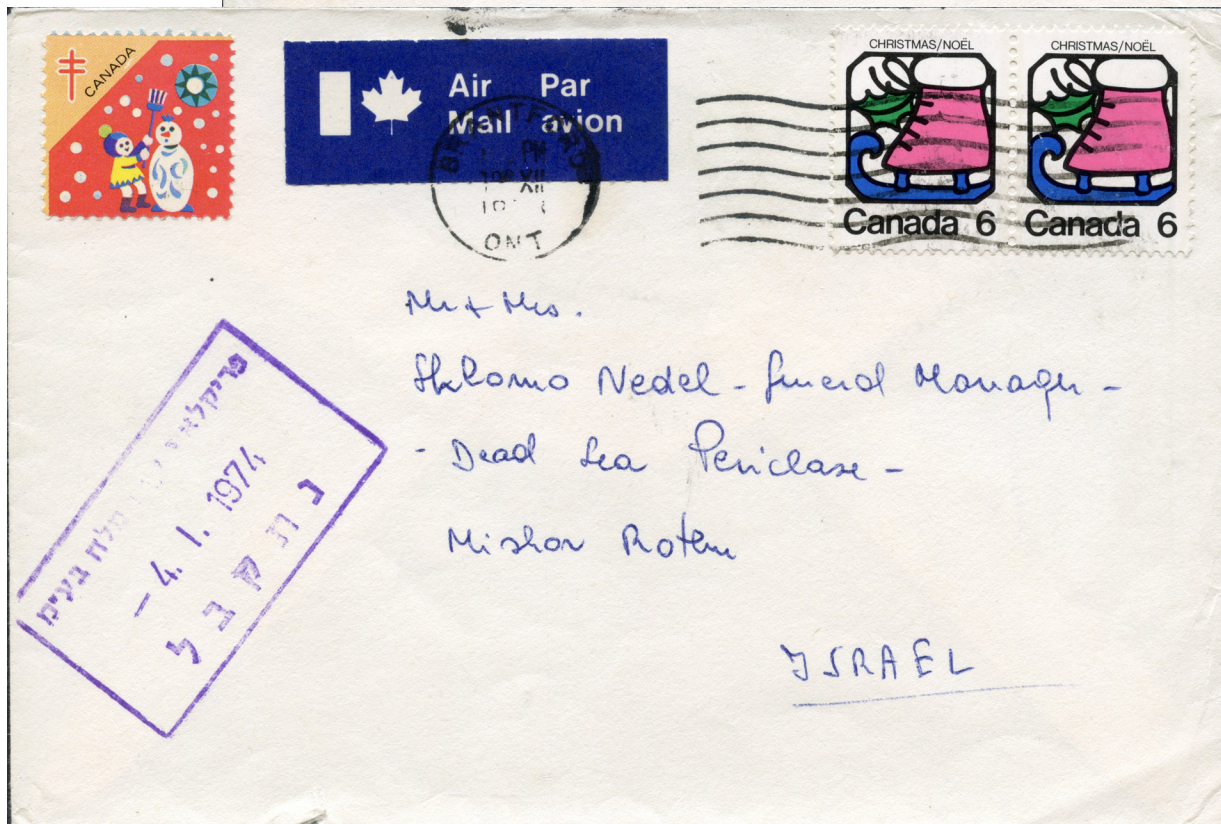 CANADA
Air Mail
Par avion
BRANTFORD
PM
XII
ONT
CHRISTMAS/NOËL
Canada 6
CHRISTMAS/NOËL
Canada 6
Mr + Mrs.
Shlomo Nedel - General Manager -
- Dead Sea Periclase -
Mishor Rotem
ISRAEL
פריקלאז מלח בע"מ
- 4. I. 1974
נתקבל